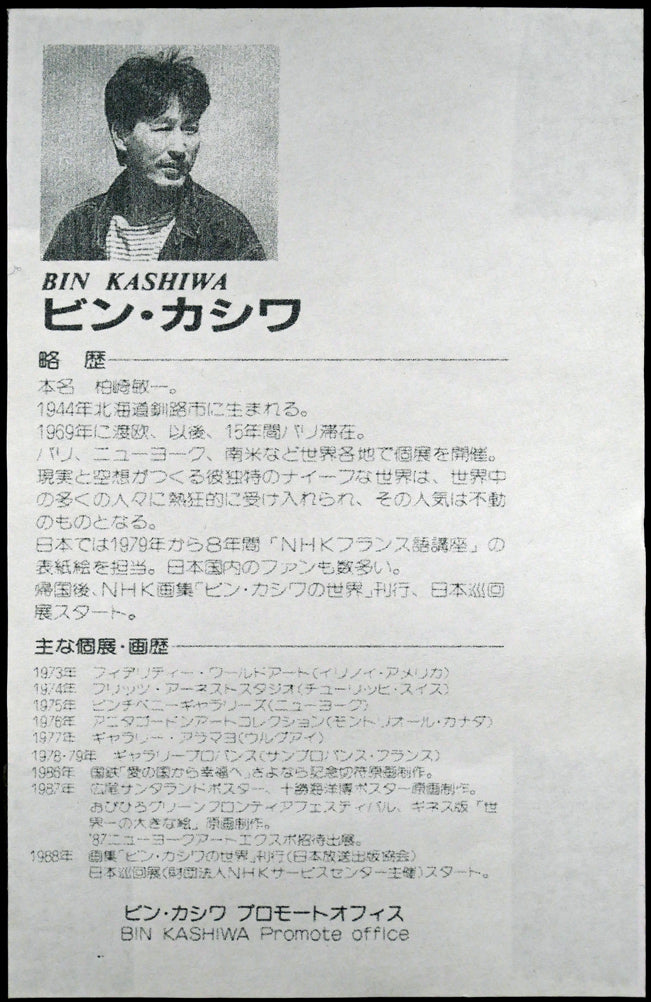 BIN KASHIWA
ビン・カシワ
略 歴
本名 柏崎敏一。
1944年北海道釧路市に生まれる。
1969年に渡欧、以後、15年間パリ滞在。
パリ、ニューヨーク、南米など世界各地で個展を開催。
現実と空想がつくる彼独特のナイーブな世界は、世界中
の多くの人々に熱狂的に受け入れられ、その人気は不動
のものとなる。
日本では1979年から8年間「NHKフランス語講座」の
表紙絵を担当。日本国内のファンも数多い。
帰国後、NHK画集「ビン・カシワの世界」刊行、日本巡回
展スタート。
主な個展・画歴
1973年 フィデリティー・ワールドアート(イリノイ・アメリカ)
1974年 フリッツ・アーネストスタジオ(チューリッヒ・スイス)
1975年 ピンチペニーギャラリーズ(ニューヨーク)
1976年 アニタゴードンアートコレクション(モントリオール・カナダ)
1977年 ギャラリー・アラマヨ(ウルグアイ)
1978・79年 ギャラリープロバンス(サンプロバンス・フランス)
1986年 国鉄「愛の国から幸福へ」さよなら記念切符原画制作。
1987年 広尾サンタランドポスター、十勝海洋博ポスター原画制作。
おびひろグリーンフロンティアフェスティバル、ギネス版「世
界一の大きな絵」原画制作。
'87ニューヨークアートエクスポ招待出展。
1988年 画集「ビン・カシワの世界」刊行(日本放送出版協会)
日本巡回展(財団法人NHKサービスセンター主催)スタート。
ビン・カシワ プロモートオフィス
BIN KASHIWA Promote office